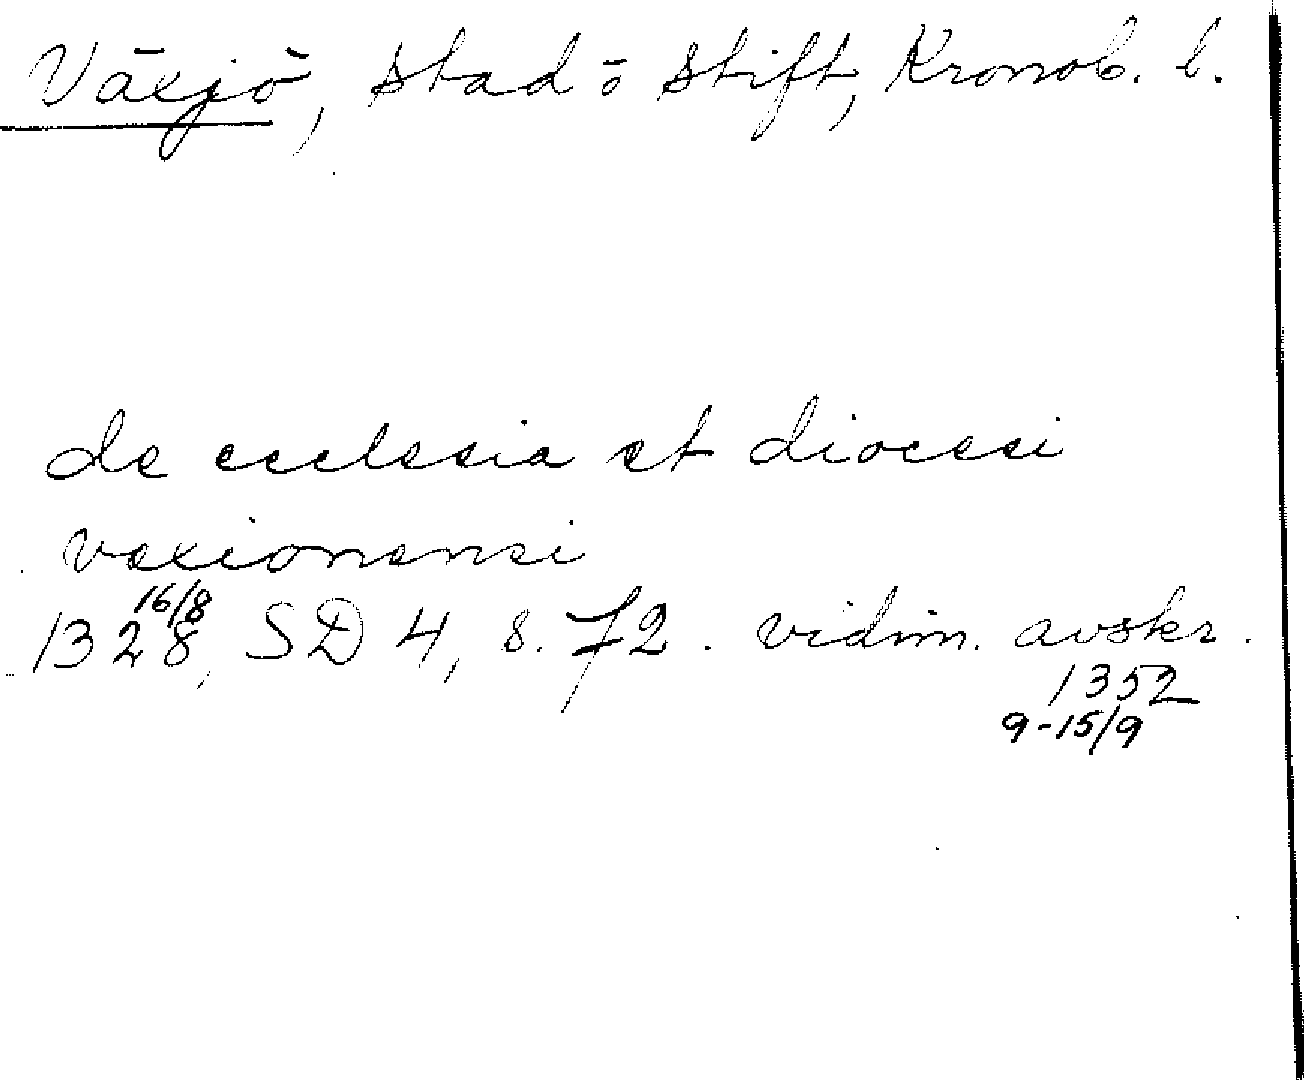 Växjö, stad o stift, Kronob. l.
de ecclesia et diocesi
vexionensi
16/8
1328, SD 4, s. 72. vidim. avskr.
1352
9-15/9